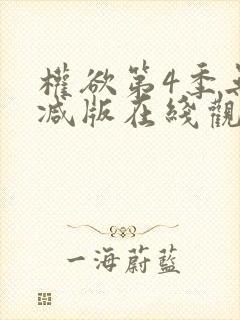 權欲第4季
减版在綫觀
一海蔚藍